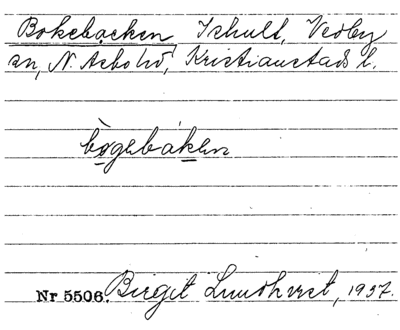 Bokebacken, Ishult, Vedby
sn, N. Åsbo hd, Kristianstads l.
bògebáken
Nr 5506. Birgit Lundkvist, 1937.